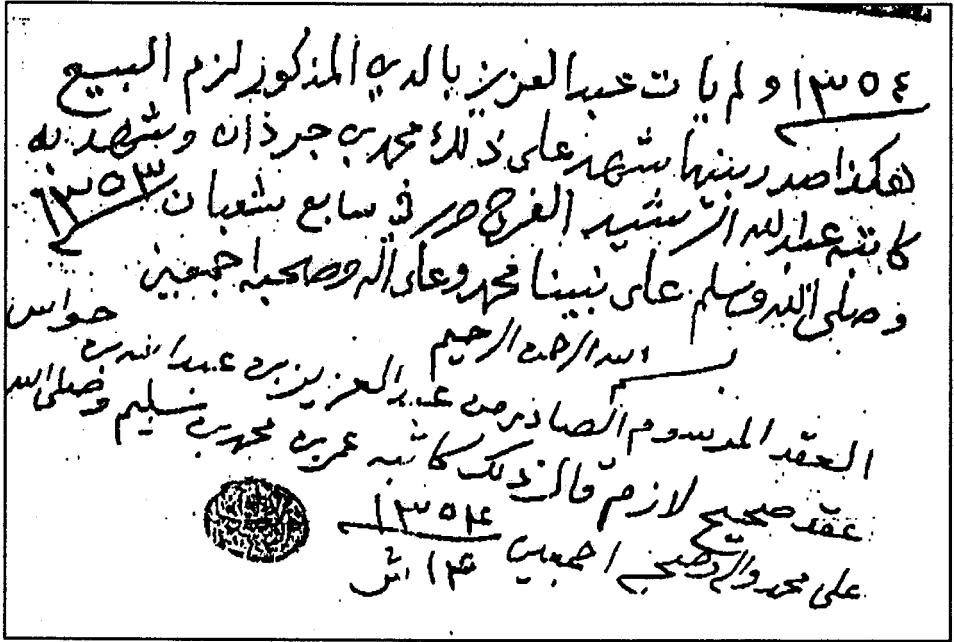 ١٣٥٤ ولم يات عبد العزيز بالدين المذكور لزم البيع
هكذا صدر بينهما شهد على ذلك محمد بن جرذان وشهد به
كاتبه عبد الله الرشيد الفرج حرر في سابع شعبان ١٣٥٣
وصلى الله وسلم على نبينا محمد وعلى آله وصحبه اجمعين
بسم الله الرحمن الرحيم
العقد المرسوم الصادر من عبد العزيز بن عبد الله بن حواس
عقد صحيح لازم قال ذلك كاتبه عمر بن محمد بن سليم وصلى الله
على محمد وآله وصحبه اجمعين ١٣٥٤
١٤ ش